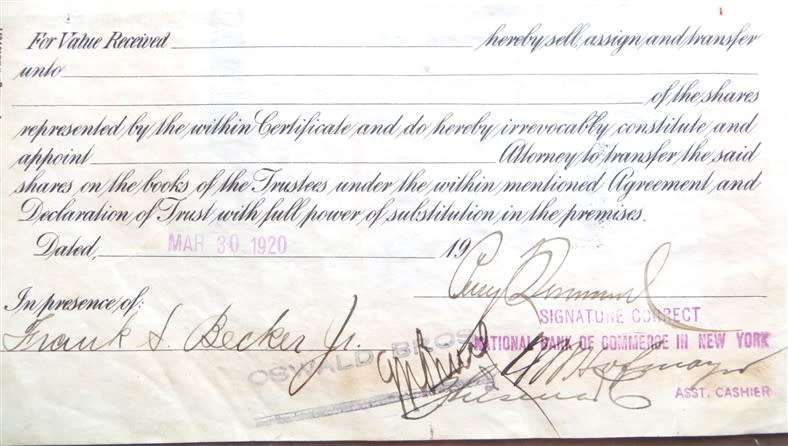 For Value Received hereby sell, assign and transfer
unto
of the shares
represented by the within Certificate and do hereby irrevocably constitute and
appoint Attorney to transfer the said
shares on the books of the Trustees under the within mentioned Agreement and
Declaration of Trust with full power of substitution in the premises.
Dated, MAR 30 1920 19
In presence of:
SIGNATURE CORRECT
Frank S. Becker Jr.
OSWALD BROS
NATIONAL BANK OF COMMERCE IN NEW YORK
ASST. CASHIER